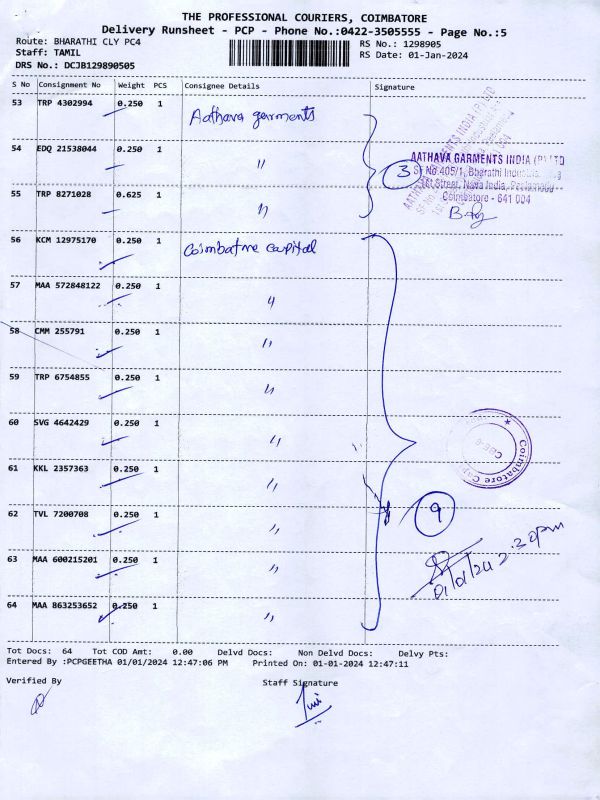 THE PROFESSIONAL COURIERS, COIMBATORE
Delivery Runsheet - PCP - Phone No.:0422-3505555 - Page No.:5
Route: BHARATHI CLY PC4 RS No.: 1298905
Staff: TAMIL RS Date: 01-Jan-2024
DRS No.: DCJB129890505
S No Consignment No Weight PCS Consignee Details Signature
53 TRP 4302994 0.250 1 Aathava garments
54 EDQ 21538044 0.250 1 "
55 TRP 8271028 0.625 1 "
3
AATHAVA GARMENTS INDIA (P) LTD
SF No.405/1, Bharathi
1st Street, Nava India,
Coimbatore - 641 004
56 KCM 12975170 0.250 1 Coimbatore capital
57 MAA 572848122 0.250 1 "
58 CMM 255791 0.250 1 "
59 TRP 6754855 0.250 1 "
60 SVG 4642429 0.250 1 "
61 KKL 2357363 0.250 1 "
62 TVL 7200708 0.250 1 "
63 MAA 600215201 0.250 1 "
64 MAA 863253652 0.250 1 "
Coimbatore
9
01/01/24 2.30pm
Tot Docs: 64 Tot COD Amt: 0.00 Delvd Docs: Non Delvd Docs: Delvy Pts:
Entered By :PCPGEETHA 01/01/2024 12:47:06 PM Printed On: 01-01-2024 12:47:11
Verified By Staff Signature